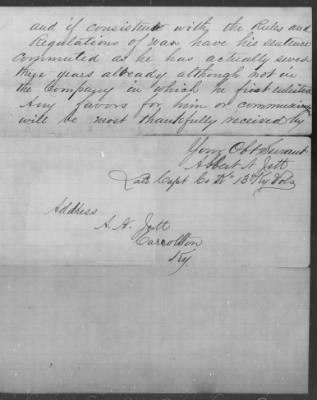 and if consistent with the Rules and
Regulations of war have his sentence
commuted as he has actually served
three years already although not in
the Company in which he first enlisted
Any favors for him or communication
will be most thankfully received by
Your Obt Servant
Albert N. Jett
Late Capt Co 13 Ky Vols
Address
A. N. Jett
Carrollton
Ky